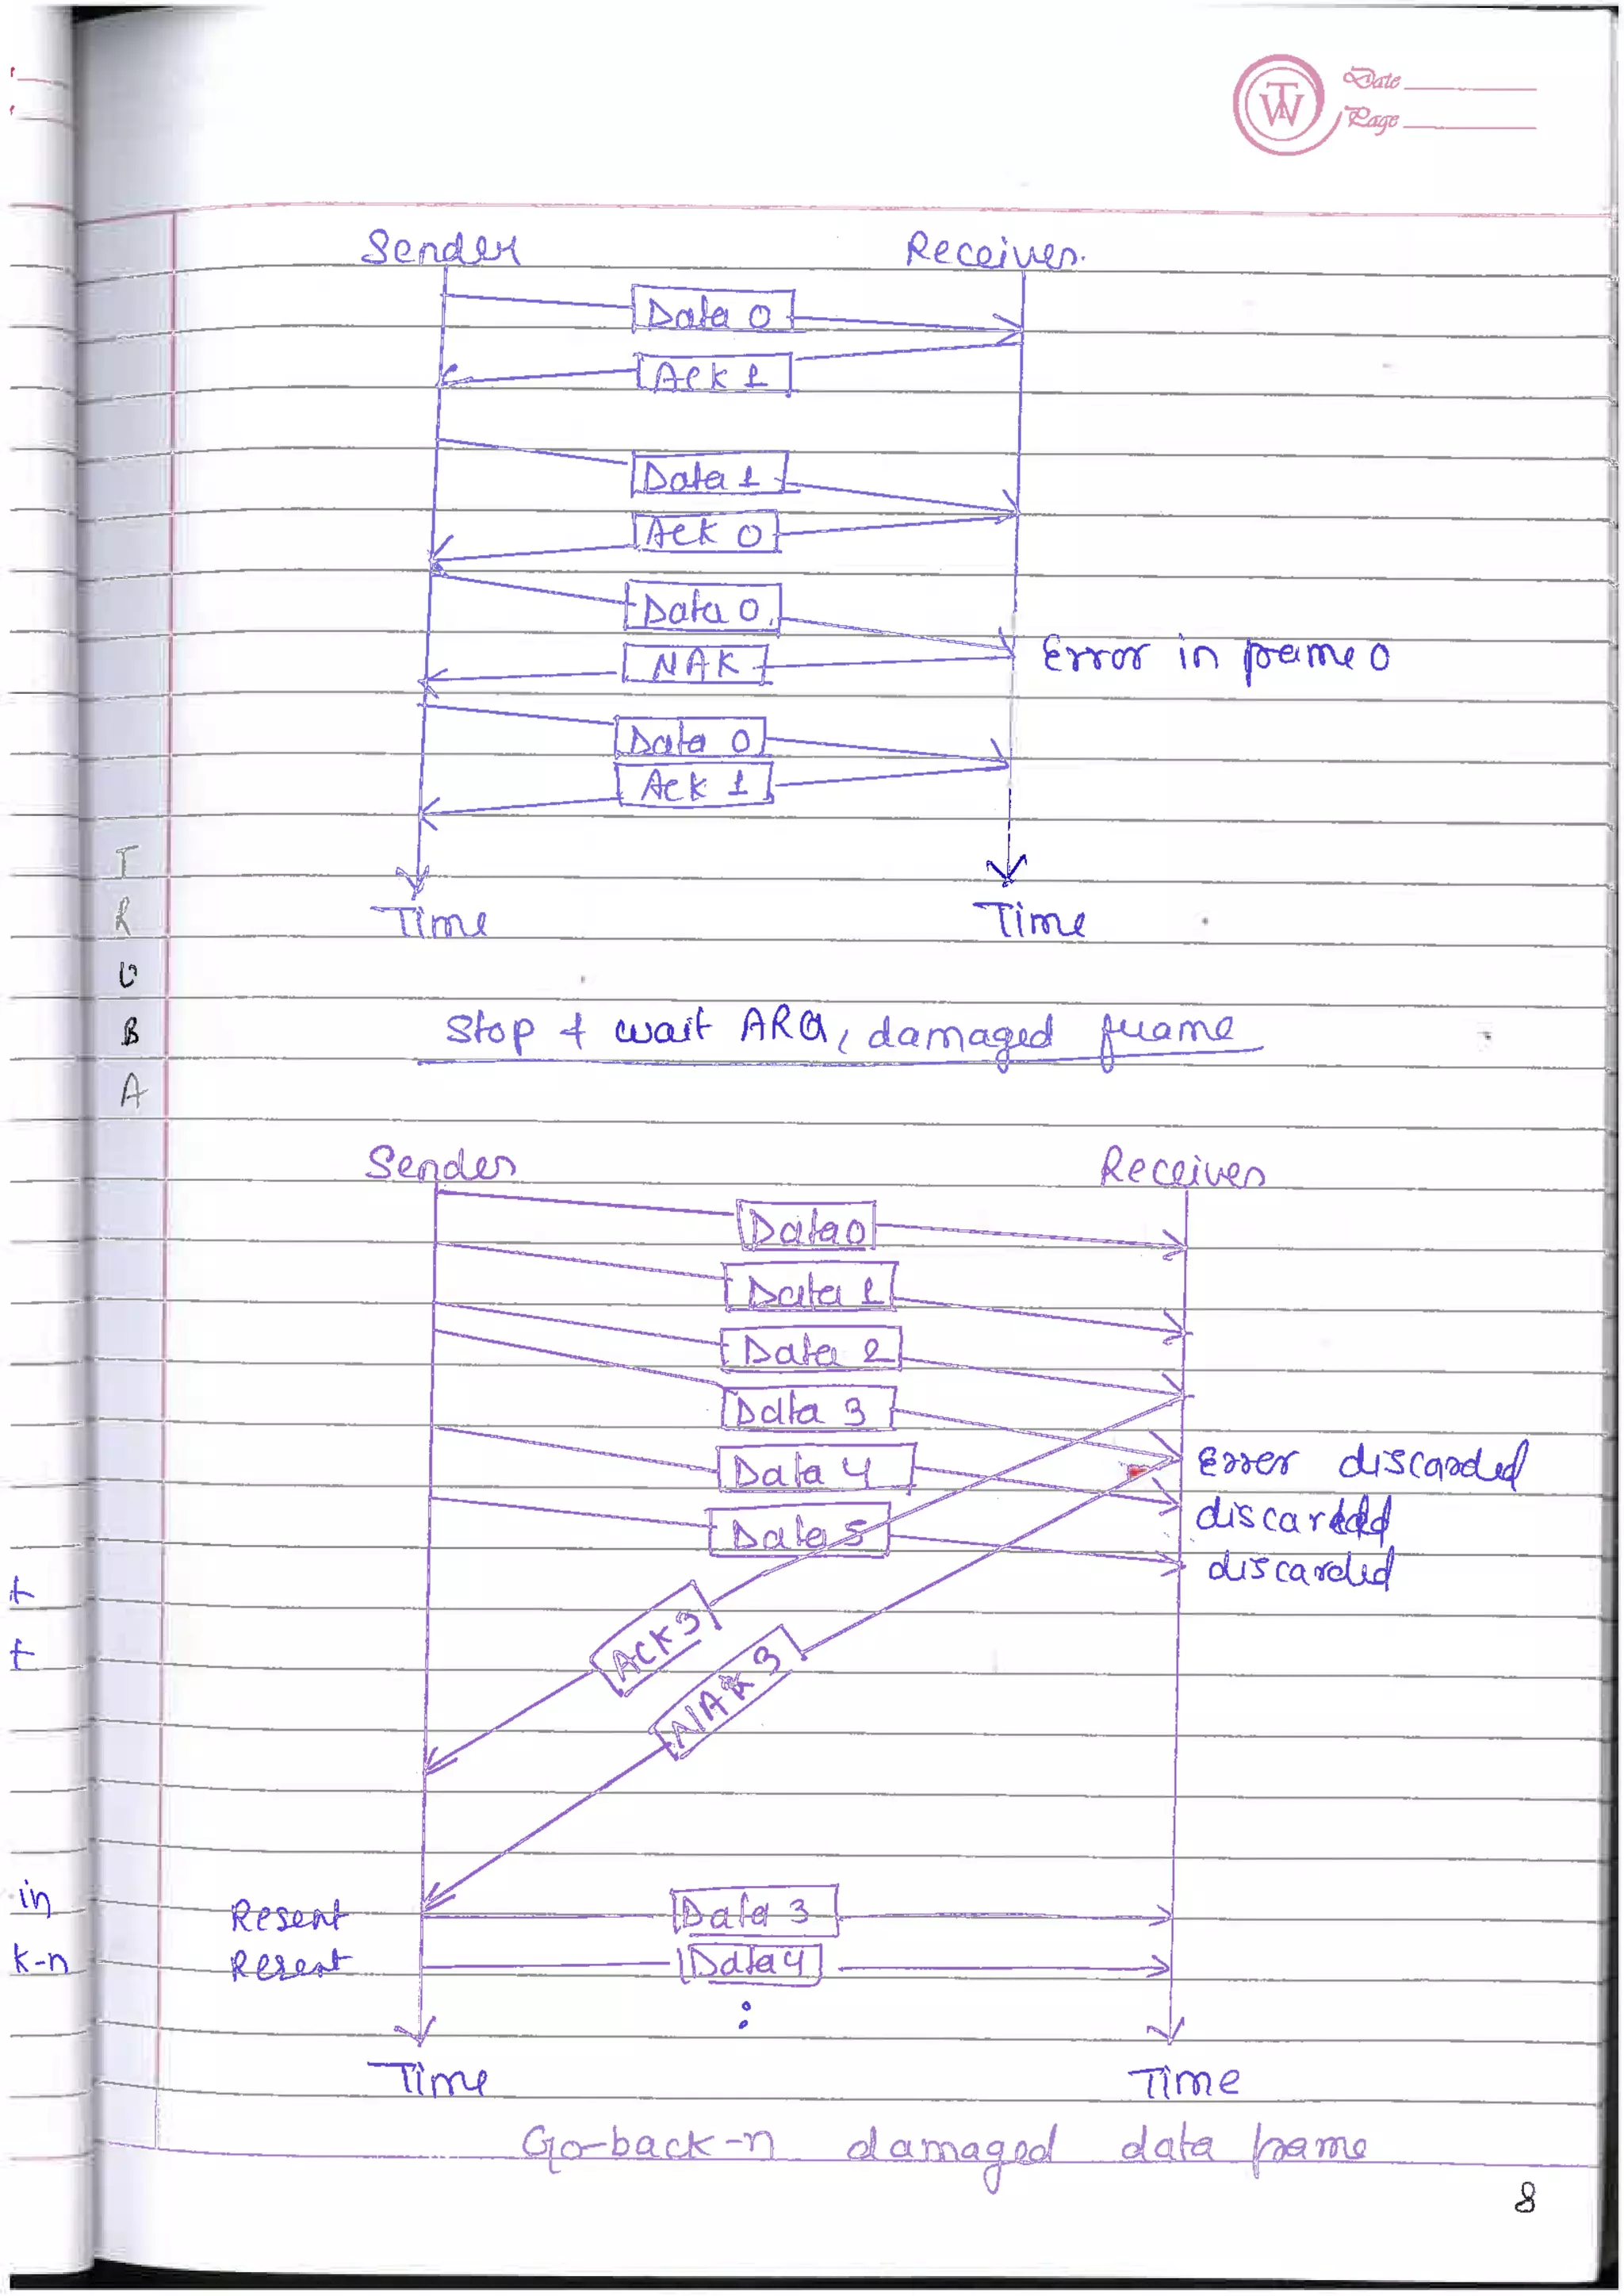 Date
Page
Sender Receiver.
Data 0
Ack 1
Data 1
Ack 0
Data 0
NAK Error in frame 0
Data 0
Ack 1
Time Time
T
R
U
B
A
Stop & wait ARQ, damaged frame
Sender Receiver
Data 0
Data 1
Data 2
Data 3
Data 4 Error discarded
discarded
Data 5
discarded
ACK 3
NAK 3
t
t
in
Resent Data 3
k-n
Resent Data 4
:
Time Time
Go-back-n damaged data frame
8